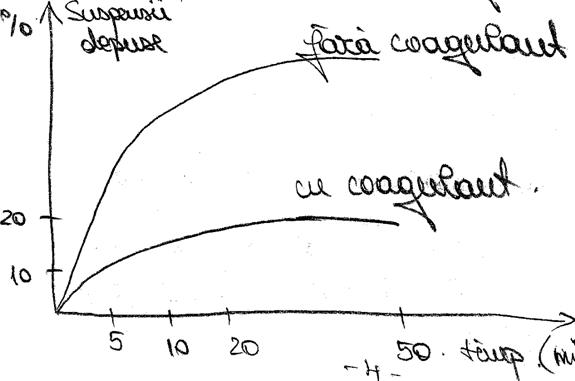 % Suspensii
depuse
fără coagulant
cu coagulant.
20
10
5 10 20 50. timp (mi
-4-